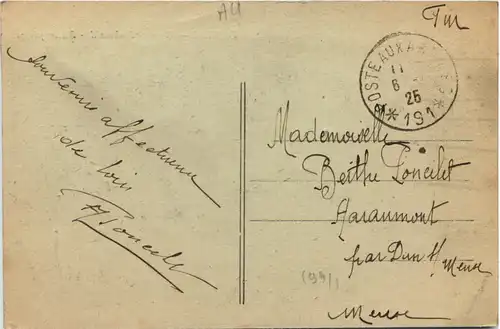 AU
Fm
POSTE AUX AR
11
6
25
* 191 *
Souvenirs affectueux
de loin
APoncelet
Mademoiselle
Berthe Poncelet
Haraumont
par Dun s/ Meuse
(99)
Meuse